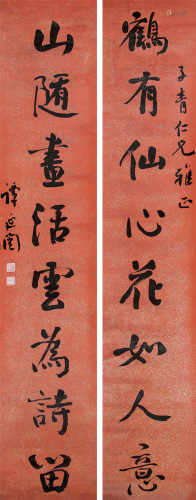 子青仁兄雅正
鶴有仙心花如人意
山随畫活雲為詩留
譚延闓